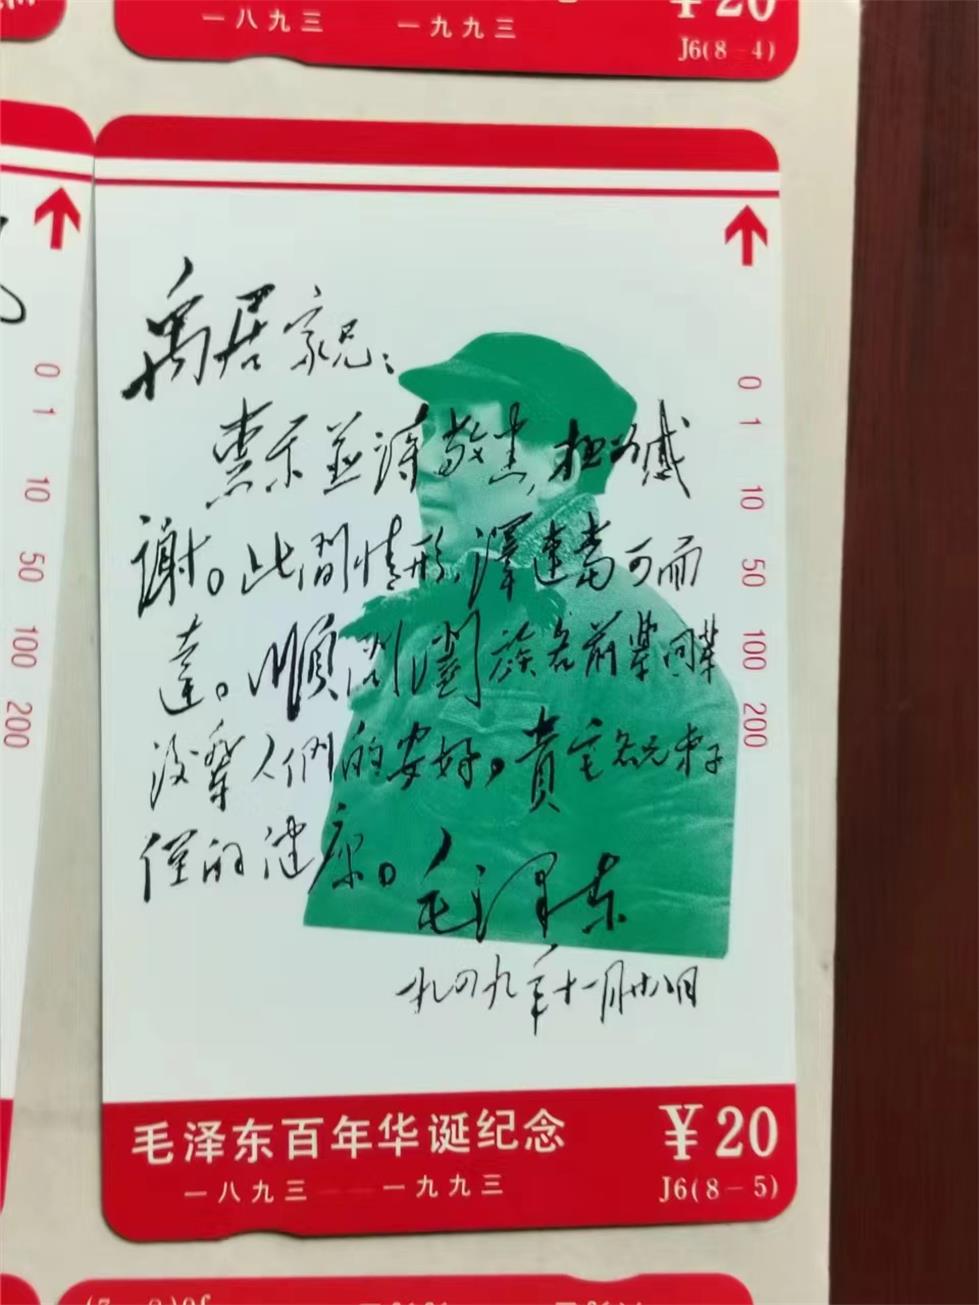 一八九三 一九九三
¥20
J6(8-4)
0
1
10
50
100
200
禹居宗兄：
惠示並诗敬悉，極为感
谢。此間情形，澤連當可面
達。順問族各前輩同輩
後輩人們的安好，貴宅各兄弟子
侄的健康。毛泽东
一九四九年十一月廿八日
0
1
10
50
100
200
毛泽东百年华诞纪念
¥20
一八九三 一九九三
J6(8-5)